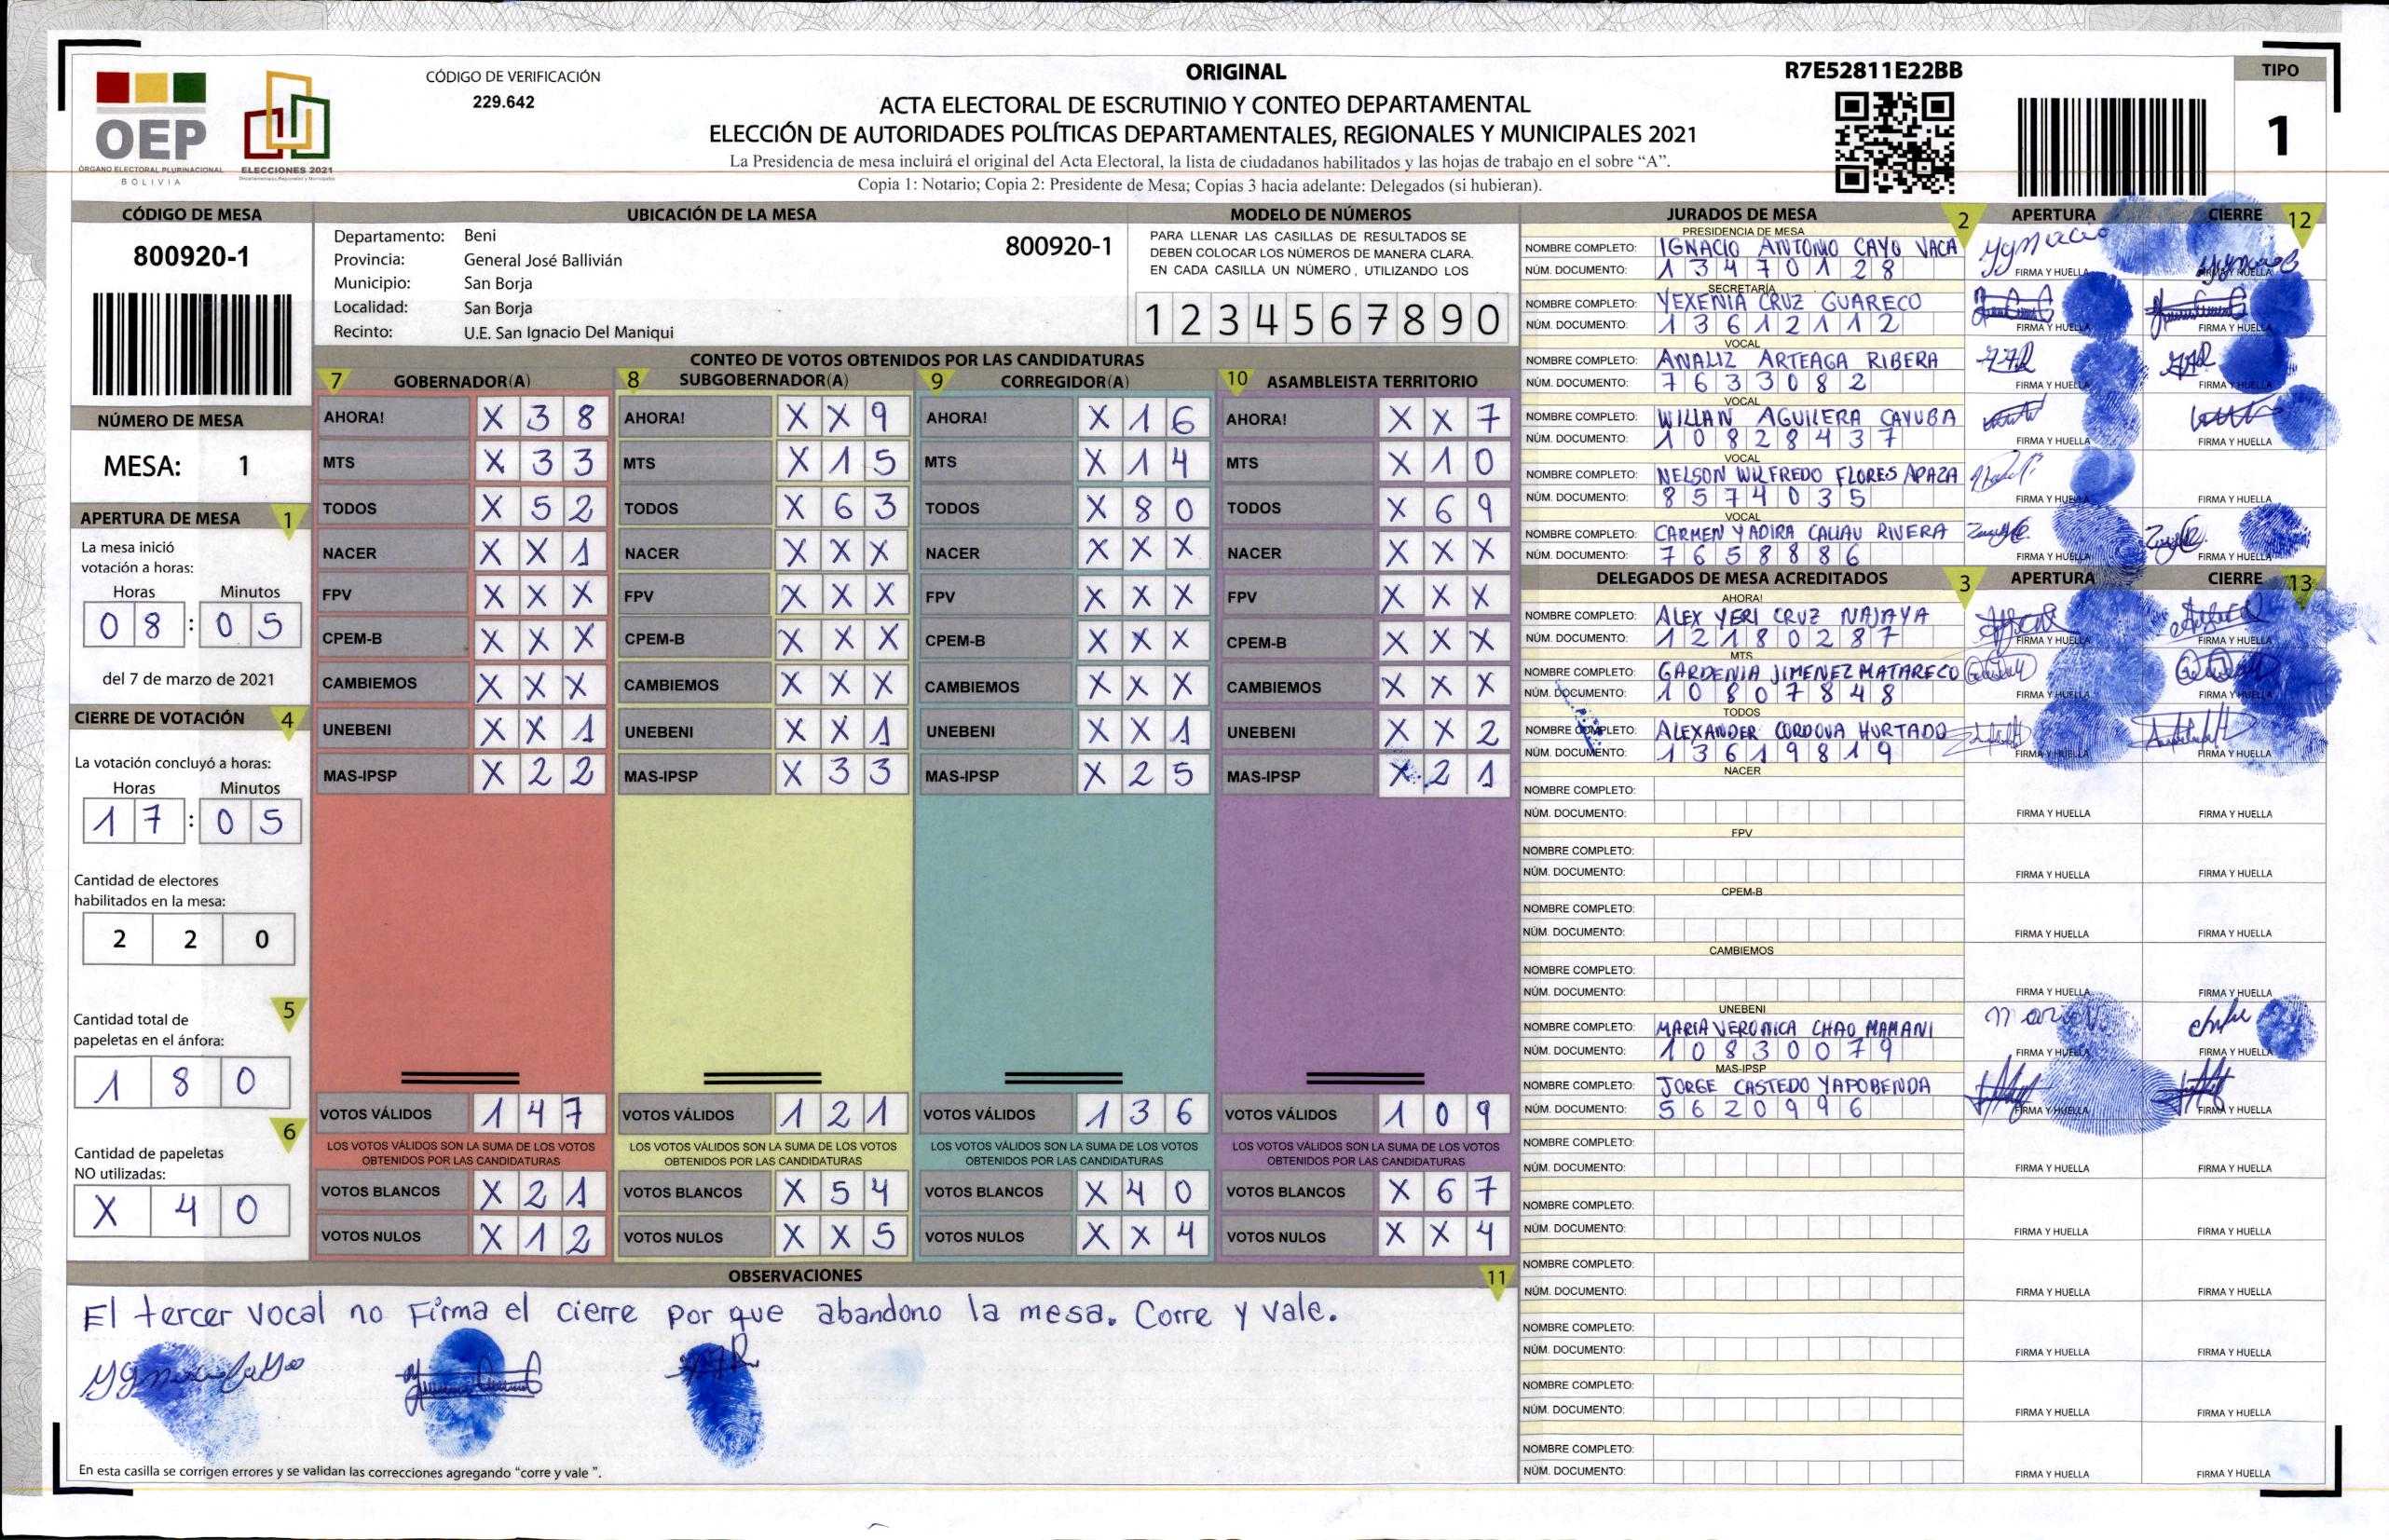 ORIGINAL
R7E52811E22BB
TIPO
1
OEP
ÓRGANO ELECTORAL PLURINACIONAL
BOLIVIA
ELECCIONES 2021
CÓDIGO DE VERIFICACIÓN
229.642
ACTA ELECTORAL DE ESCRUTINIO Y CONTEO DEPARTAMENTAL
ELECCIÓN DE AUTORIDADES POLÍTICAS DEPARTAMENTALES, REGIONALES Y MUNICIPALES 2021
La Presidencia de mesa incluirá el original del Acta Electoral, la lista de ciudadanos habilitados y las hojas de trabajo en el sobre “A”.
Copia 1: Notario; Copia 2: Presidente de Mesa; Copias 3 hacia adelante: Delegados (si hubieran).
CÓDIGO DE MESA
800920-1
NÚMERO DE MESA
MESA: 1
APERTURA DE MESA 1
La mesa inició
votación a horas:
Horas Minutos
0 8 : 0 5
del 7 de marzo de 2021
CIERRE DE VOTACIÓN 4
La votación concluyó a horas:
Horas Minutos
1 7 : 0 5
Cantidad de electores
habilitados en la mesa:
2 2 0
5
Cantidad total de
papeletas en el ánfora:
1 8 0
6
Cantidad de papeletas
NO utilizadas:
X 4 0
UBICACIÓN DE LA MESA
Departamento: Beni
800920-1
Provincia: General José Ballivián
Municipio: San Borja
Localidad: San Borja
Recinto: U.E. San Ignacio Del Maniqui
MODELO DE NÚMEROS
PARA LLENAR LAS CASILLAS DE RESULTADOS SE
DEBEN COLOCAR LOS NÚMEROS DE MANERA CLARA.
EN CADA CASILLA UN NÚMERO, UTILIZANDO LOS
1 2 3 4 5 6 7 8 9 0
CONTEO DE VOTOS OBTENIDOS POR LAS CANDIDATURAS
7 GOBERNADOR(A)
AHORA! X 3 8
MTS X 3 3
TODOS X 5 2
NACER X X 1
FPV X X X
CPEM-B X X X
CAMBIEMOS X X X
UNEBENI X X 1
MAS-IPSP X 2 2
VOTOS VÁLIDOS 1 4 7
LOS VOTOS VÁLIDOS SON LA SUMA DE LOS VOTOS
OBTENIDOS POR LAS CANDIDATURAS
VOTOS BLANCOS X 2 1
VOTOS NULOS X 1 2
8 SUBGOBERNADOR(A)
AHORA! X X 9
MTS X 1 5
TODOS X 6 3
NACER X X X
FPV X X X
CPEM-B X X X
CAMBIEMOS X X X
UNEBENI X X 1
MAS-IPSP X 3 3
VOTOS VÁLIDOS 1 2 1
LOS VOTOS VÁLIDOS SON LA SUMA DE LOS VOTOS
OBTENIDOS POR LAS CANDIDATURAS
VOTOS BLANCOS X 5 4
VOTOS NULOS X X 5
9 CORREGIDOR(A)
AHORA! X 1 6
MTS X 1 4
TODOS X 8 0
NACER X X X
FPV X X X
CPEM-B X X X
CAMBIEMOS X X X
UNEBENI X X 1
MAS-IPSP X 2 5
VOTOS VÁLIDOS 1 3 6
LOS VOTOS VÁLIDOS SON LA SUMA DE LOS VOTOS
OBTENIDOS POR LAS CANDIDATURAS
VOTOS BLANCOS X 4 0
VOTOS NULOS X X 4
10 ASAMBLEISTA TERRITORIO
AHORA! X X 7
MTS X 1 0
TODOS X 6 9
NACER X X X
FPV X X X
CPEM-B X X X
CAMBIEMOS X X X
UNEBENI X X 2
MAS-IPSP X 2 1
VOTOS VÁLIDOS 1 0 9
LOS VOTOS VÁLIDOS SON LA SUMA DE LOS VOTOS
OBTENIDOS POR LAS CANDIDATURAS
VOTOS BLANCOS X 6 7
VOTOS NULOS X X 4
OBSERVACIONES 11
El tercer vocal no Firma el cierre por que abandono la mesa. Corre y vale.
En esta casilla se corrigen errores y se validan las correcciones agregando “corre y vale ”.
JURADOS DE MESA 2 APERTURA CIERRE 12
PRESIDENCIA DE MESA
NOMBRE COMPLETO: IGNACIO ANTONIO CAYO VACA
NÚM. DOCUMENTO: 1 3 4 7 0 1 2 8 FIRMA Y HUELLA FIRMA Y HUELLA
SECRETARÍA
NOMBRE COMPLETO: YEXENIA CRUZ GUARECO
NÚM. DOCUMENTO: 1 3 6 1 2 1 1 2 FIRMA Y HUELLA FIRMA Y HUELLA
VOCAL
NOMBRE COMPLETO: ANALIZ ARTEAGA RIBERA
NÚM. DOCUMENTO: 7 6 3 3 0 8 2 FIRMA Y HUELLA FIRMA Y HUELLA
VOCAL
NOMBRE COMPLETO: WILLAN AGUILERA CAYUBA
NÚM. DOCUMENTO: 1 0 8 2 8 4 3 7 FIRMA Y HUELLA FIRMA Y HUELLA
VOCAL
NOMBRE COMPLETO: NELSON WILFREDO FLORES APAZA
NÚM. DOCUMENTO: 8 5 7 4 0 3 5 FIRMA Y HUELLA FIRMA Y HUELLA
VOCAL
NOMBRE COMPLETO: CARMEN YADIRA CALLAU RIVERA
NÚM. DOCUMENTO: 7 6 5 8 8 8 6 FIRMA Y HUELLA FIRMA Y HUELLA
DELEGADOS DE MESA ACREDITADOS 3 APERTURA CIERRE 13
AHORA!
NOMBRE COMPLETO: ALEX YERI CRUZ NAJAYA
NÚM. DOCUMENTO: 1 2 1 8 0 2 8 7 FIRMA Y HUELLA FIRMA Y HUELLA
MTS
NOMBRE COMPLETO: GARDENIA JIMENEZ MATARECO
NÚM. DOCUMENTO: 1 0 8 0 7 8 4 8 FIRMA Y HUELLA FIRMA Y HUELLA
TODOS
NOMBRE COMPLETO: ALEXANDER CORDOVA HURTADO
NÚM. DOCUMENTO: 1 3 6 1 9 8 1 9 FIRMA Y HUELLA FIRMA Y HUELLA
NACER
NOMBRE COMPLETO:
NÚM. DOCUMENTO: FIRMA Y HUELLA FIRMA Y HUELLA
FPV
NOMBRE COMPLETO:
NÚM. DOCUMENTO: FIRMA Y HUELLA FIRMA Y HUELLA
CPEM-B
NOMBRE COMPLETO:
NÚM. DOCUMENTO: FIRMA Y HUELLA FIRMA Y HUELLA
CAMBIEMOS
NOMBRE COMPLETO:
NÚM. DOCUMENTO: FIRMA Y HUELLA FIRMA Y HUELLA
UNEBENI
NOMBRE COMPLETO: MARIA VERONICA CHAO MAMANI
NÚM. DOCUMENTO: 1 0 8 3 0 0 7 9 FIRMA Y HUELLA FIRMA Y HUELLA
MAS-IPSP
NOMBRE COMPLETO: JORGE CASTEDO YAPOBENDA
NÚM. DOCUMENTO: 5 6 2 0 9 9 6 FIRMA Y HUELLA FIRMA Y HUELLA
NOMBRE COMPLETO:
NÚM. DOCUMENTO: FIRMA Y HUELLA FIRMA Y HUELLA
NOMBRE COMPLETO:
NÚM. DOCUMENTO: FIRMA Y HUELLA FIRMA Y HUELLA
NOMBRE COMPLETO:
NÚM. DOCUMENTO: FIRMA Y HUELLA FIRMA Y HUELLA
NOMBRE COMPLETO:
NÚM. DOCUMENTO: FIRMA Y HUELLA FIRMA Y HUELLA
NOMBRE COMPLETO:
NÚM. DOCUMENTO: FIRMA Y HUELLA FIRMA Y HUELLA
NOMBRE COMPLETO:
NÚM. DOCUMENTO: FIRMA Y HUELLA FIRMA Y HUELLA